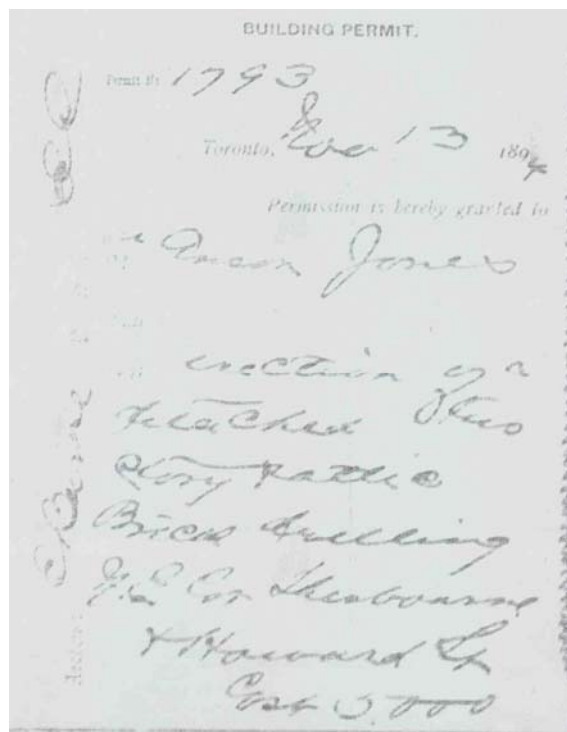 BUILDING PERMIT.
Permit No 1793
Toronto, Nov 13 1894
Permission is hereby granted to
Anson Jones
erection of a
detached two
story & attic
Brick dwelling
N.E. Cor Sherbourne
& Howard St
Cost 5,000